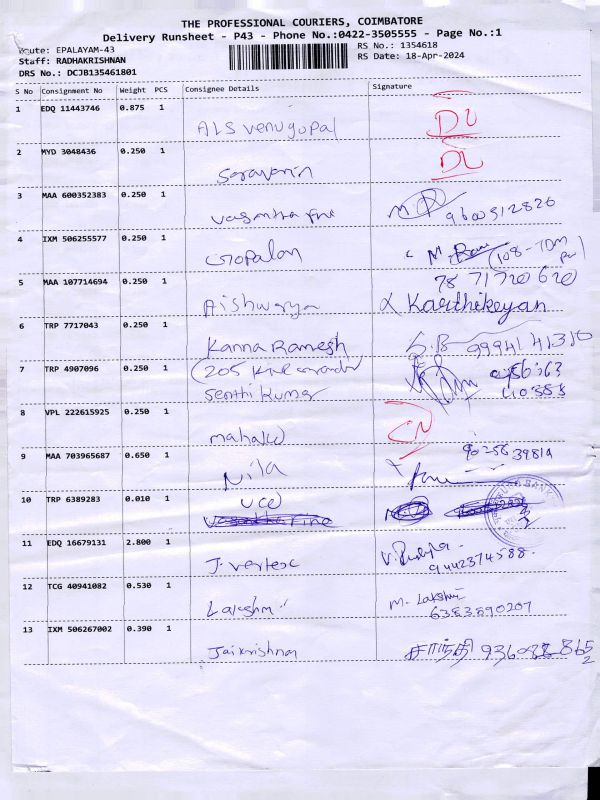 THE PROFESSIONAL COURIERS, COIMBATORE
Delivery Runsheet - P43 - Phone No.:0422-3505555 - Page No.:1
Route: EPALAYAM-43
RS No.: 1354618
Staff: RADHAKRISHNAN
RS Date: 18-Apr-2024
DRS No.: DCJB135461801
S No Consignment No Weight PCS Consignee Details Signature
1 EDQ 11443746 0.875 1
ALS Venugopal DL
2 MYD 3048436 0.250 1
Saravanin DL
3 MAA 600352383 0.250 1
Vasantha fine 9600312826
4 IXM 506255577 0.250 1
Gopalan (108-TDM
78 71720620
5 MAA 107714694 0.250 1
Aishwarya Karthikeyan
6 TRP 7717043 0.250 1
Kanna Ramesh S.B 9994141310
7 TRP 4907096 0.250 1
(205
Senthi Kumar
8 VPL 222615925 0.250 1
CN
9 MAA 703965687 0.650 1
Nila 90256 39819
10 TRP 6389283 0.010 1
UCO
Vasantha Fine
11 EDQ 16679131 2.800 1
J. Vertex
9442374588.
12 TCG 40941082 0.530 1
Lakshmi M. Lakshmi
6383890207
13 IXM 506267002 0.390 1
Jaikrishna சாந்தி